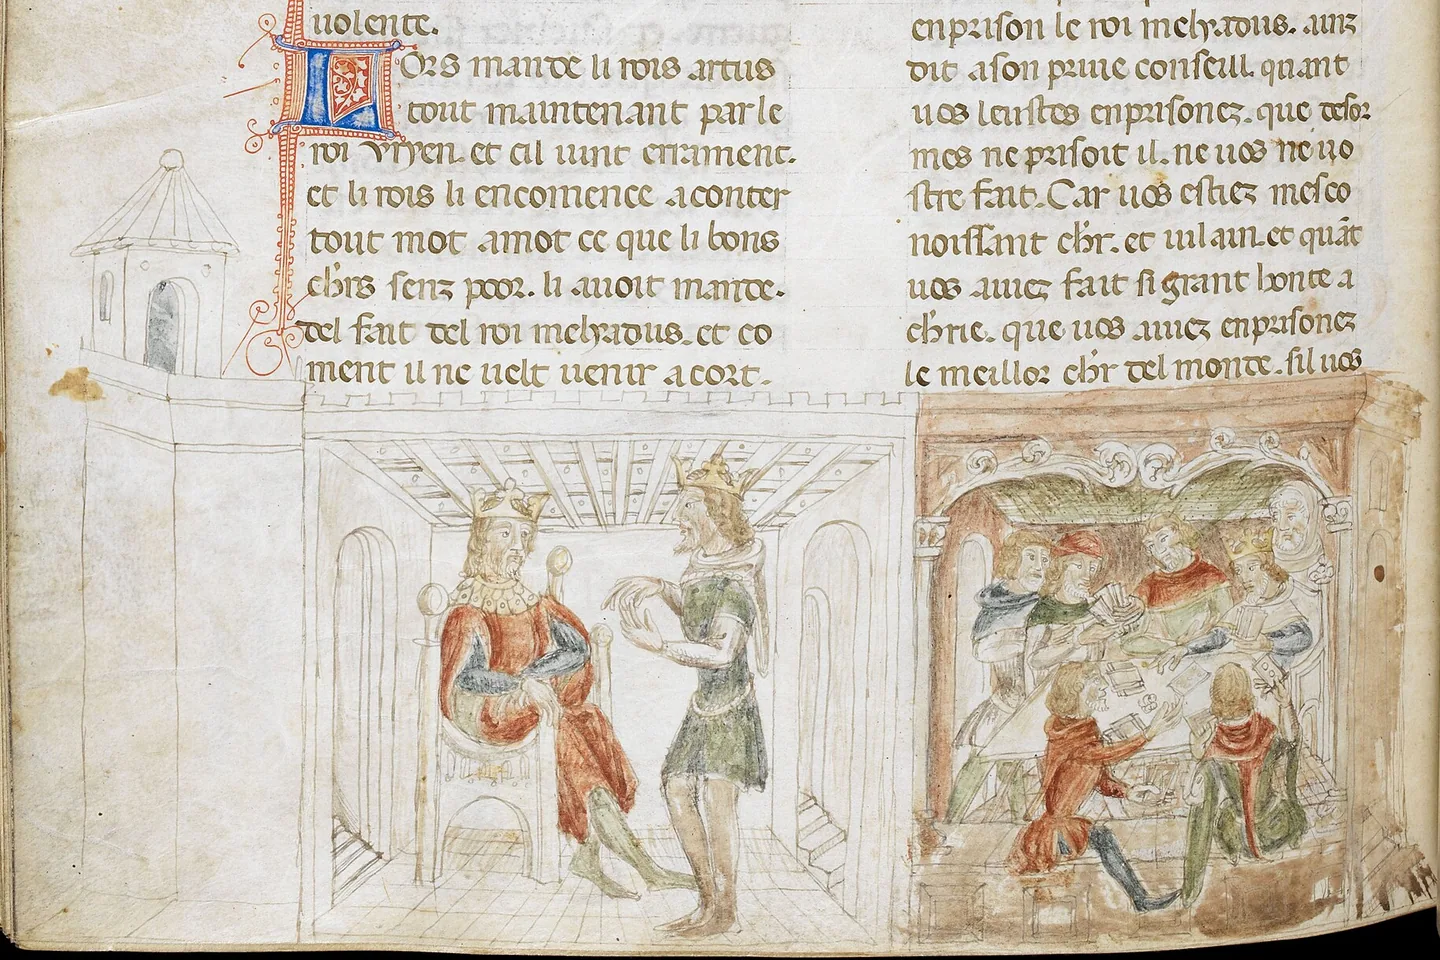 uolente.
LORS mande li rois artus
tout maintenant par le
roi yvyen. et cil uint errament.
et li rois li encomence a conter
tout mot amot ce que li bons
chrs senz poor. li auoit mande.
del fait del roi melyadus. et co
ment il ne uelt uenir a cort.
enprison le roi melyadus. ainz
dit a son priue conseill. quant
uos leustes enprisonez. que desor
mes ne prisoit il. ne uos ne uo
stre fait. Car uos estiez mesco
noissant chr. et uilain. et quāt
uos auiez fait si grant honte a
chrie. que uos auiez enprisonez
le meillor chr del monde. sil uos